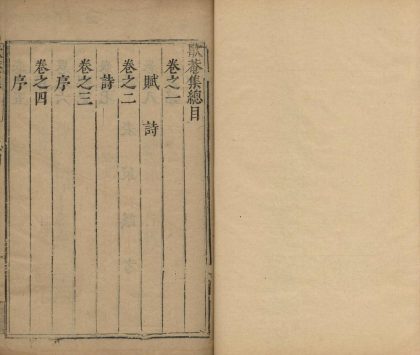 歇菴集總目
卷之一
賦 詩
卷之二
詩
卷之三
序
卷之四
序